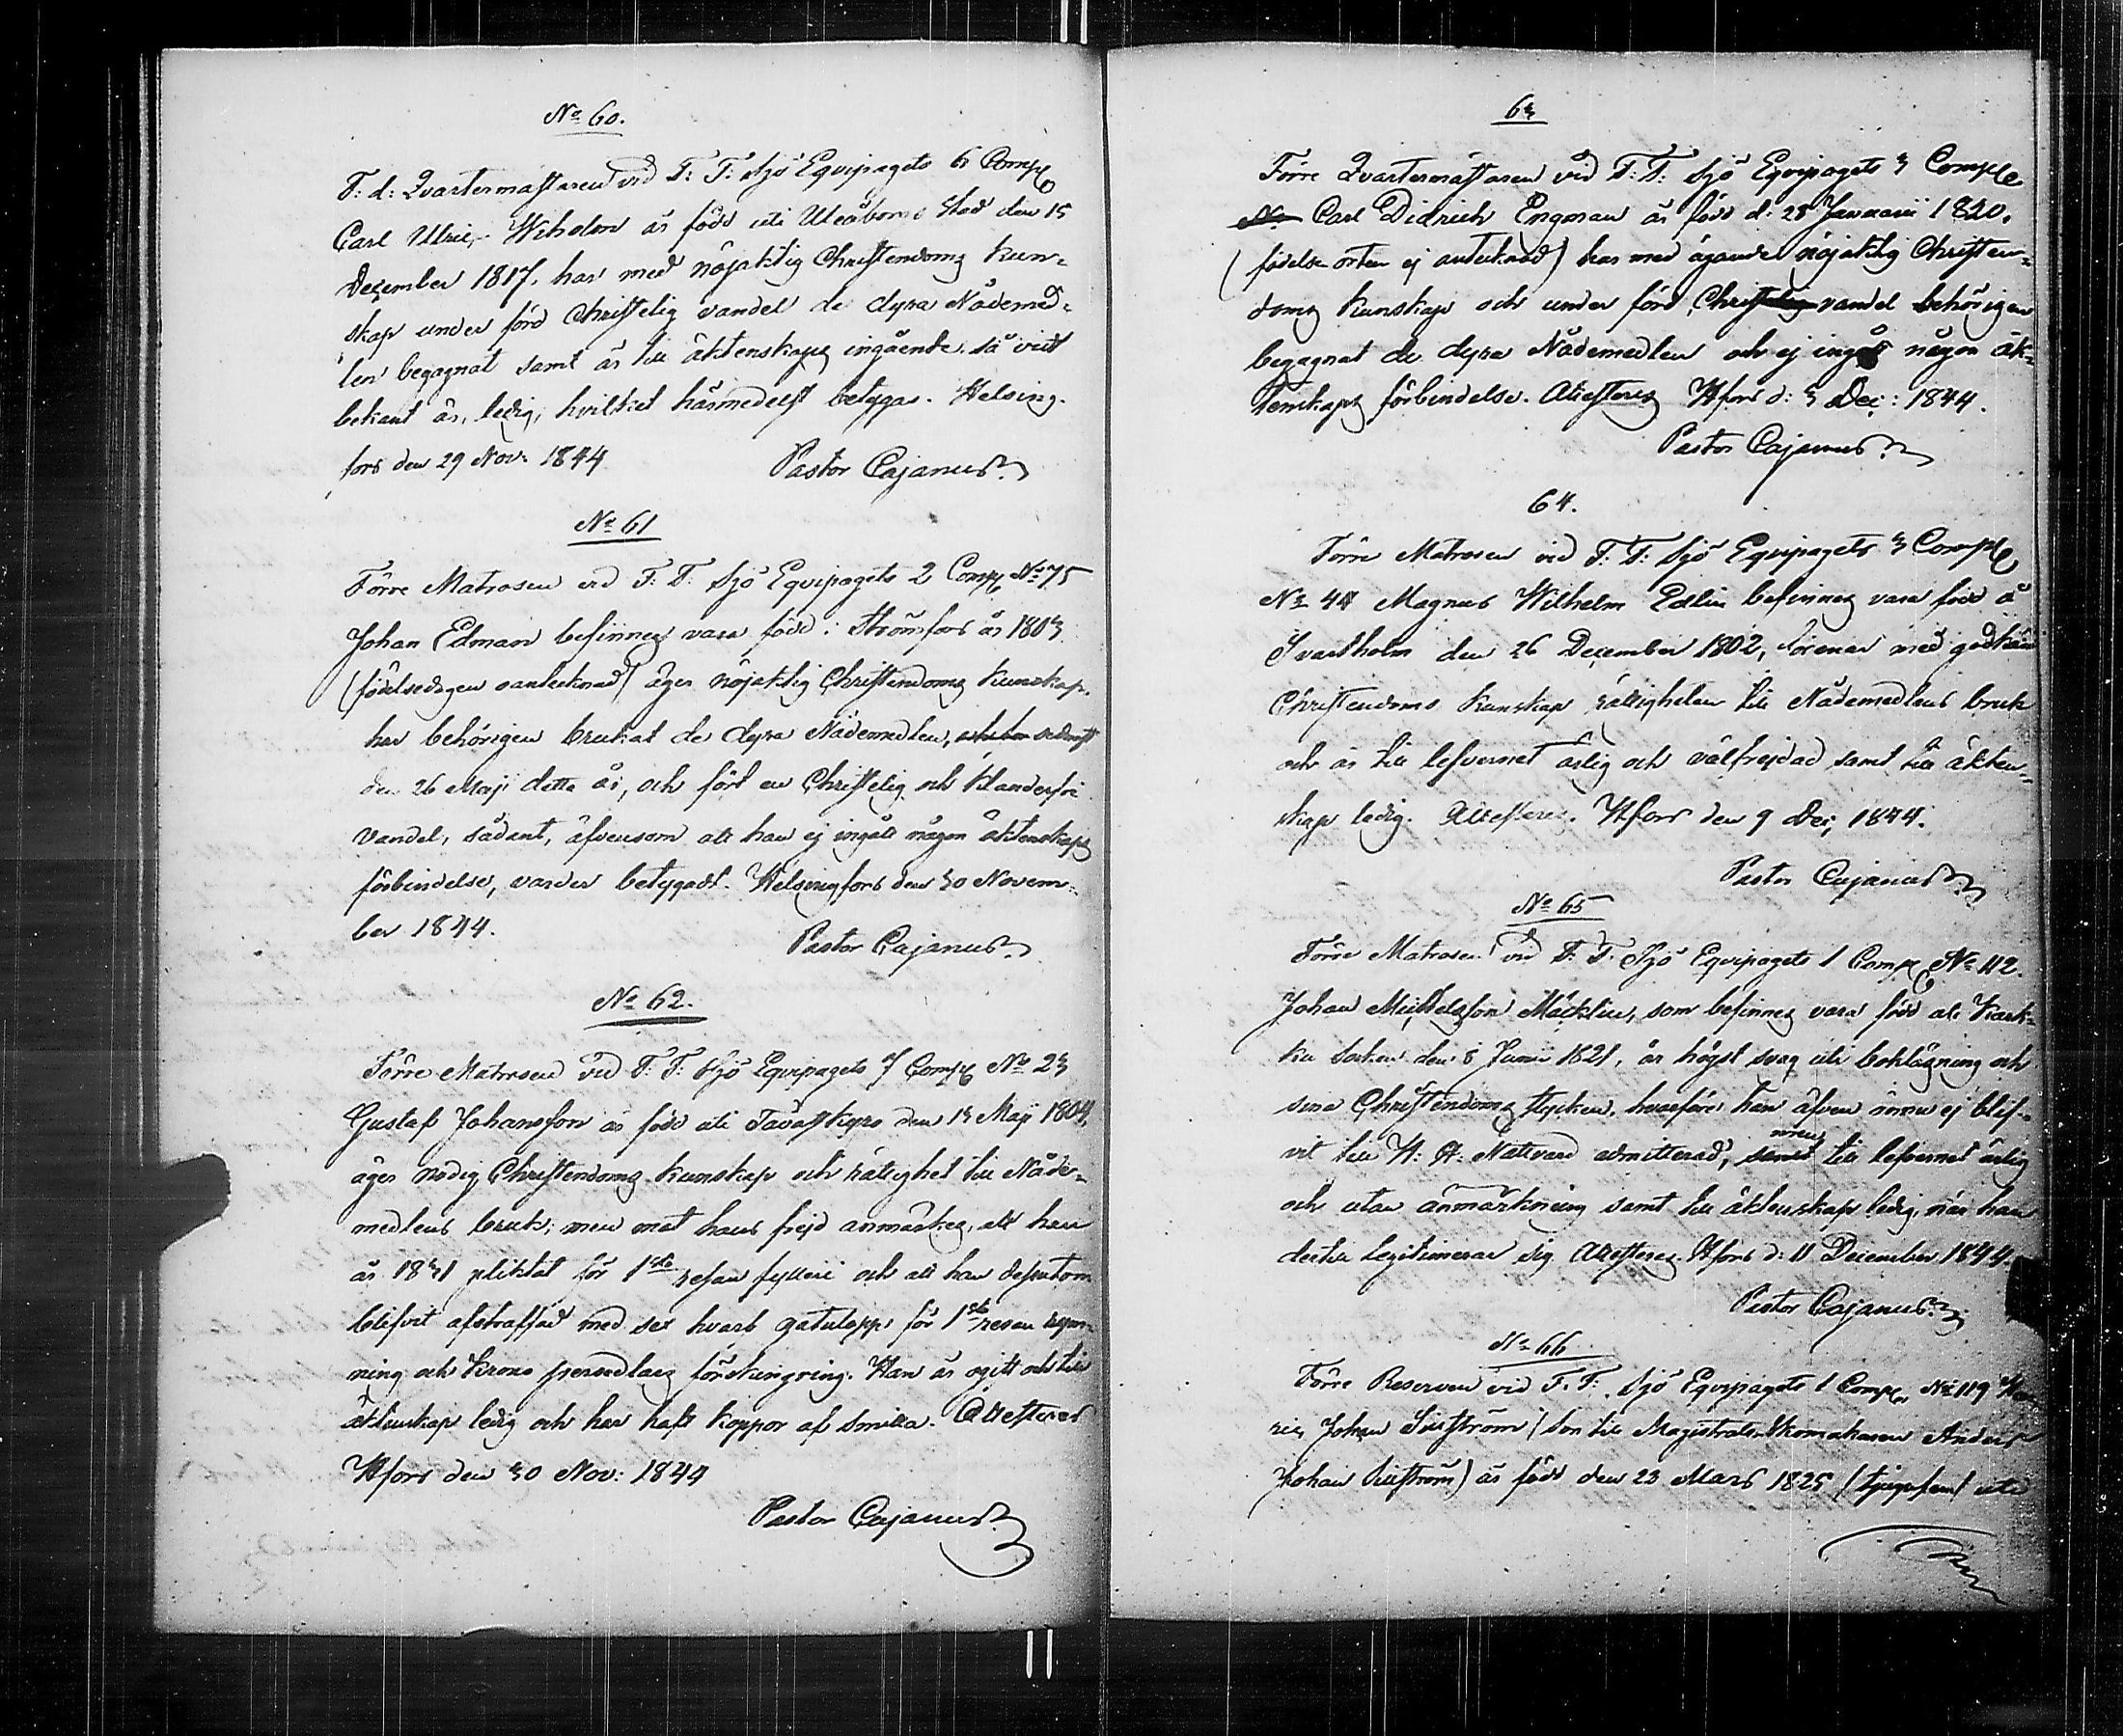 No 60.
F: d: Qvartermästaren vid F: F: Sjö Eqvipagets 6 Comp
Carl Ulric Wiholm är född uti Uleåborgs Stad den 15
December 1817, har med nöjaktig Christendoms kun-
skap under förd Christelig vandel de dyra Nådemed-
len begagnat samt är till äktenskaps ingående, så vidt
bekant är, ledig, hvilket härmedelst betygas. Helsing-
fors den 29 Nov. 1844
Pastor Cajanus
No 61
Förre Matrosen vid F: F: Sjö Eqvipagets 2 Comp No 75
Johan Edman befinnes vara född i Strömfors år 1803
(födelsedagen oantecknad) äger nöjaktig Christendoms kunskap,
har behörigen brukat de dyra Nådemedlen, sednast
den 26 Maji detta år, och fört en Christelig och klanderfri
vandel, sådant, äfvensom att han ej ingått någon äktenskaps
förbindelse, varder betygadt. Helsingfors den 30 Novem-
ber 1844.
Pastor Cajanus
No 62.
Förre Matrosen vid F: F: Sjö Eqvipagets 7 Comp No 23
Gustaf Johansson är född uti Tavastkyro den 13 Maji 1804,
äger nödig Christendoms kunskap och rättighet till Nåde-
medlens bruk; men mot hans frejd anmärkes, att han
år 1831 pliktat för 1sta resan fylleri och att han dessutom
blifvit afstraffad med sex hvarf gatulopp för 1sta resan rym-
ning och Krono persedlars förskingring. Han är ogift och till
äktenskap ledig och har haft koppor af smitta. Attesteras
Hfors den 30 Nov: 1844
Pastor Cajanus
63
Förre Qvartermästaren vid F: F: Sjö Eqvipagets 3 Comp
No Carl Didrich Engman är född d: 28 Januarii 1820,
(födelse orten ej antecknad) har med ägande nöjaktig Christen-
doms kunskap och under förd Christelig vandel behörigen
begagnat de dyra Nådemedlen och ej ingått någon äk-
tenskaps förbindelse. Attesteres Hfors d: 3 Dec: 1844.
Pastor Cajanus
64.
Förre Matrosen vid F: F: Sjö Eqvipagets 3 Comp
No Magnus Wilhelm Edlin befinnes vara född å
Svartholm den 26 December 1802, förenar med godkänd
Christendoms kunskap rättigheten till Nådemedlens bruk
och är till lefvernet ärlig och välfrejdad samt till äkten-
skap ledig. Attesteres. Hfors den 9 Dec, 1844.
Pastor Cajanus
No 65
Förre Matrosen vid F: F. Sjö Eqvipagets 1 Comp No 112.
Johan Michelsson Mäcklin, som befinnes vara född uti Kark-
ku Socken den 8 Junii 1821, är högst svag uti bokläsning och
sina Christendoms stycken, hvarföre han äfven ännu ej blif-
vit till H: H: Nattvard admitterad, men till lefvernet ärlig
och utan anmärkning samt till äktenskap ledig, när han
dertill legitimerar sig Attesteres Hfors d: 11 December 1844.
Pastor Cajanus
No 66
Förre Reserven vid F. F: Sjö Eqvipagets 1 Comp, No 119 Hen-
ric Johan (son till Magistrats Skomakaren Anders
Johan) är född den 23 Mars 1825 (tjugufem) uti